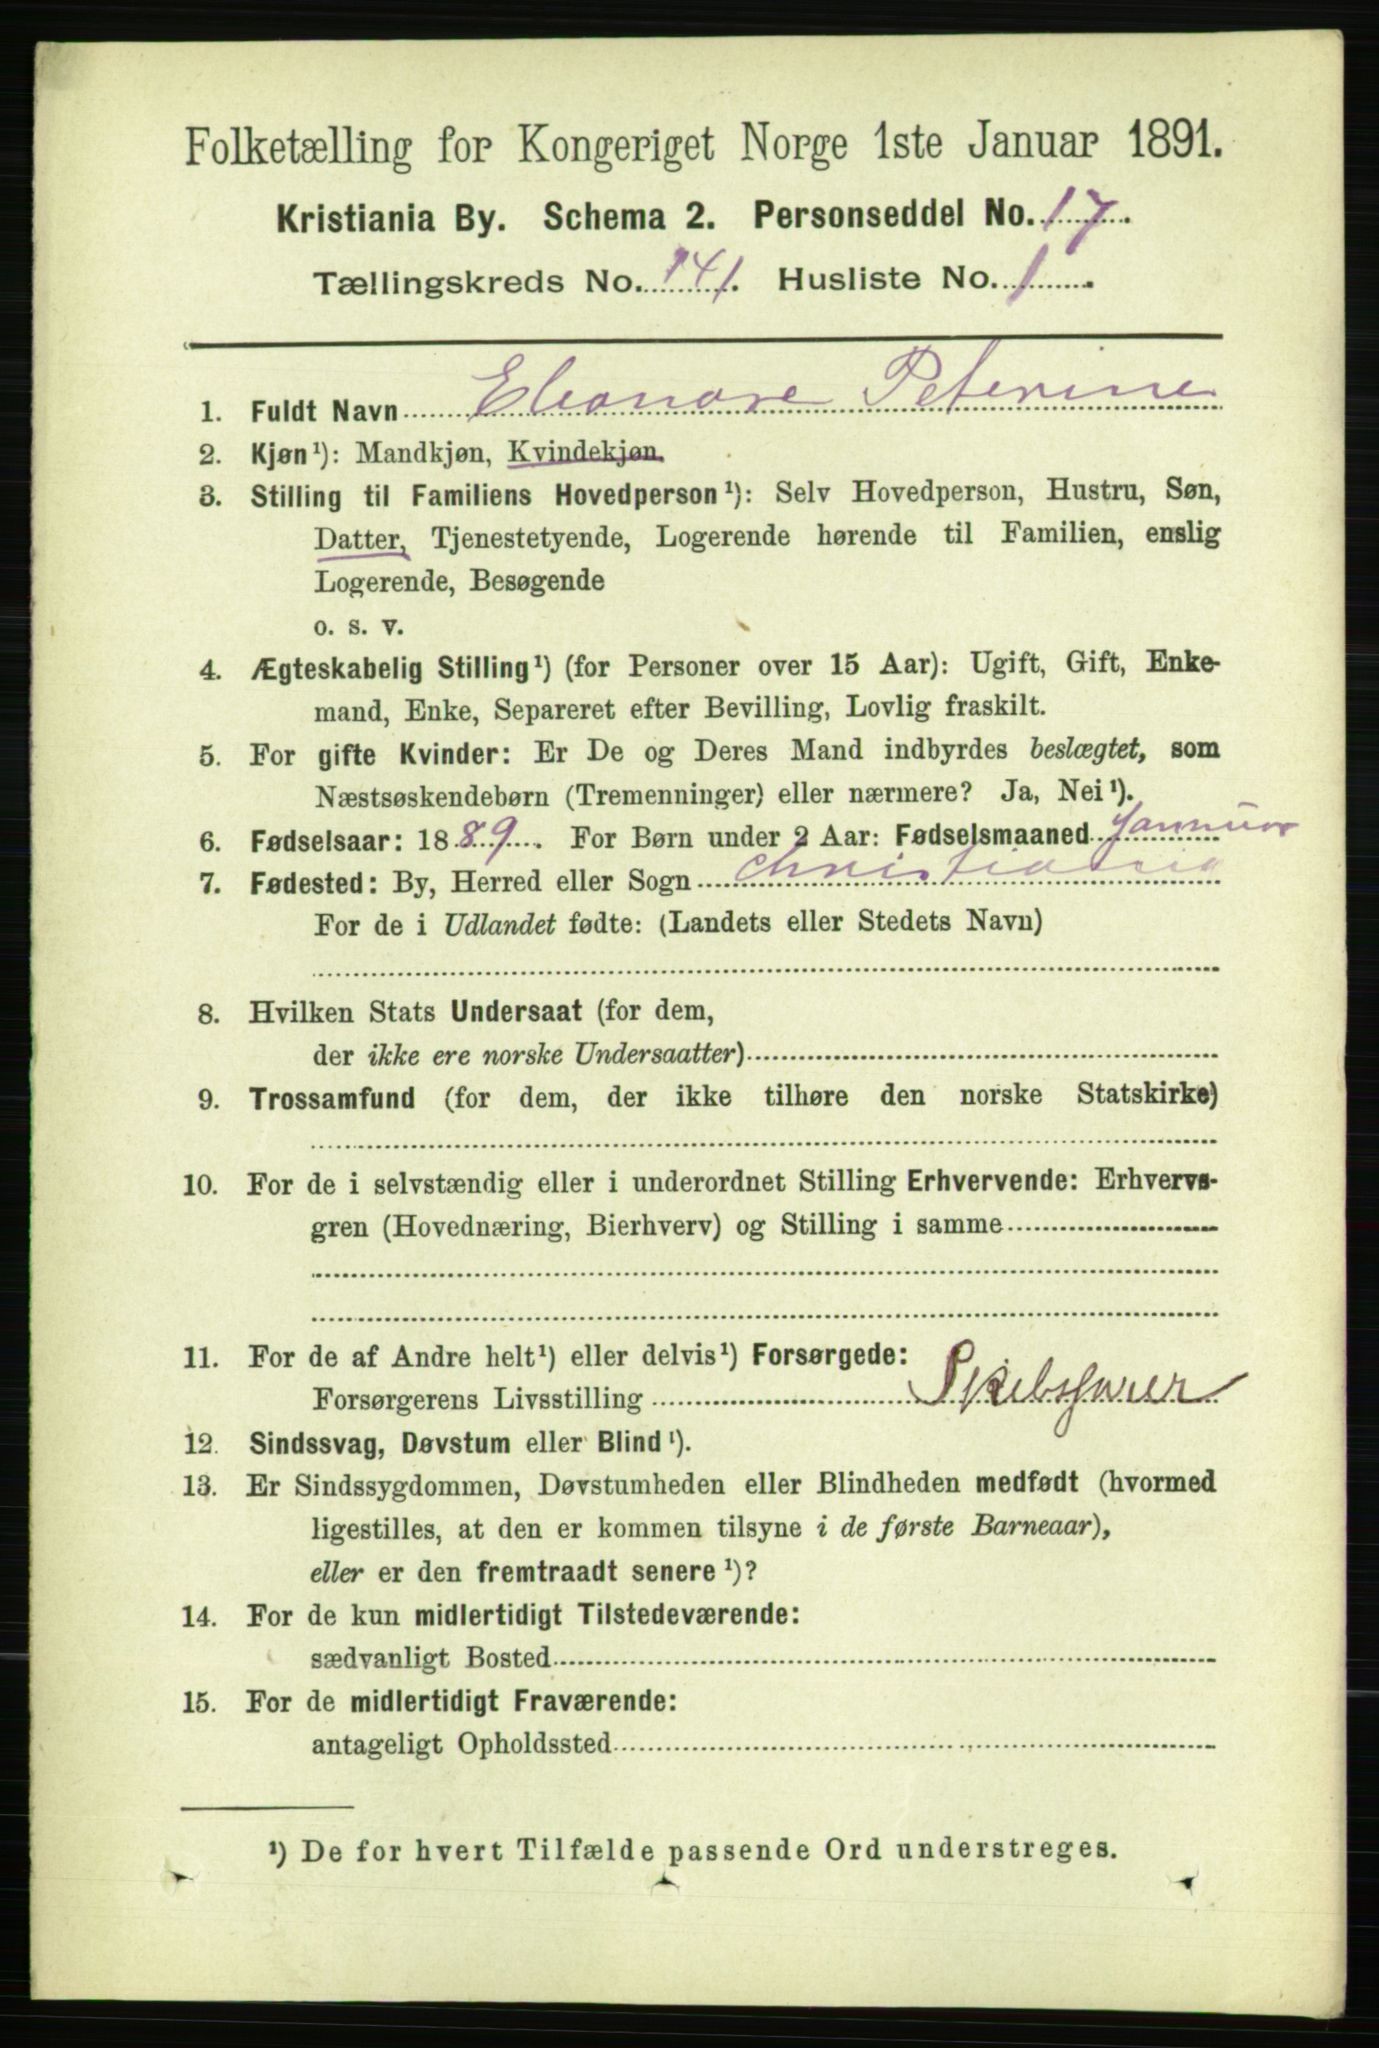 Folketælling for Kongeriget Norge 1ste Januar 1891.
Kristiania By. Schema 2. Personseddel No. 17.
Tællingskreds No. 141. Husliste No. 1.
1. Fuldt Navn Eleonore Peterine
2. Kjøn¹): Mandkjøn, Kvindekjøn.
3. Stilling til Familiens Hovedperson¹): Selv Hovedperson, Hustru, Søn,
Datter, Tjenestetyende, Logerende hørende til Familien, enslig
Logerende, Besøgende
o. s. v.
4. Ægteskabelig Stilling¹) (for Personer over 15 Aar): Ugift, Gift, Enke-
mand, Enke, Separeret efter Bevilling, Lovlig fraskilt.
5. For gifte Kvinder: Er De og Deres Mand indbyrdes beslægtet, som
Næstsøskendebørn (Tremenninger) eller nærmere? Ja, Nei¹).
6. Fødselsaar: 1889. For Børn under 2 Aar: Fødselsmaaned Januar
7. Fødested: By, Herred eller Sogn Christiania
For de i Udlandet fødte: (Landets eller Stedets Navn)
8. Hvilken Stats Undersaat (for dem,
der ikke ere norske Undersaatter)
9. Trossamfund (for dem, der ikke tilhøre den norske Statskirke)
10. For de i selvstændig eller i underordnet Stilling Erhvervende: Erhvervs-
gren (Hovednæring, Bierhverv) og Stilling i samme
11. For de af Andre helt¹) eller delvis¹) Forsørgede:
Forsørgerens Livsstilling
12. Sindssvag, Døvstum eller Blind¹).
13. Er Sindssygdommen, Døvstumheden eller Blindheden medfødt (hvormed
ligestilles, at den er kommen tilsyne i de første Barneaar),
eller er den fremtraadt senere¹)?
14. For de kun midlertidigt Tilstedeværende:
sædvanligt Bosted
15. For de midlertidigt Fraværende:
antageligt Opholdssted
¹) De for hvert Tilfælde passende Ord understreges.